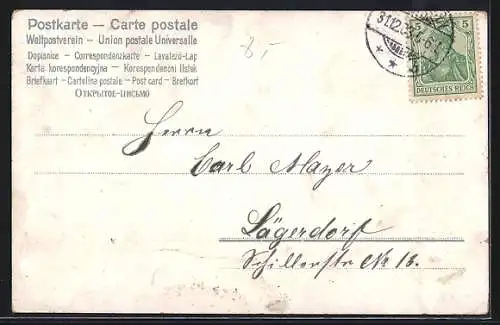 Postkarte — Carte postale
Weltpostverein – Union postale Universelle
Dopisnice – Correspondenzkarte – Levelező-Lap
Karta korespondencyjna – Korespondenční lístek
Briefkaart – Cartolina postale – Post card – Brefkort
Открытое-письмо
8,-
31.12.
5
DEUTSCHES REICH
Herrn
Carl Mayer
Lägerdorf
Schillerstr No 18.